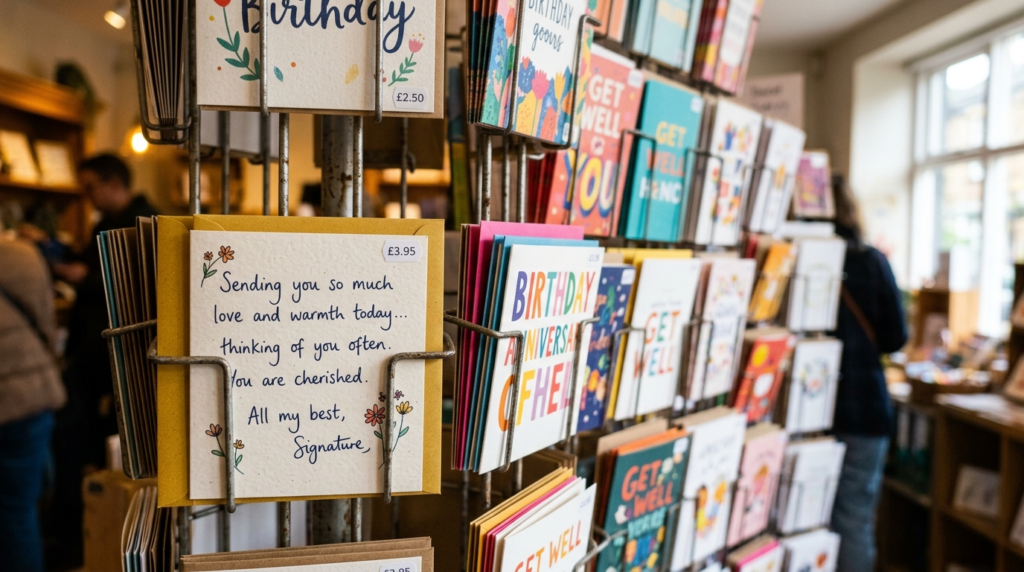 Birthday
£2.50
BIRTHDAY
goons
GET
WELL
YOU
GET
WELL
HANC
£3.95
Sending you so much
love and warmth today...
thinking of you often.
You are cherished.
All my best,
Signature,
BIRTHDAY
ANNIVERSA
OFHEL
GET
WELL
GET
WELL
GET WELL
£3.95